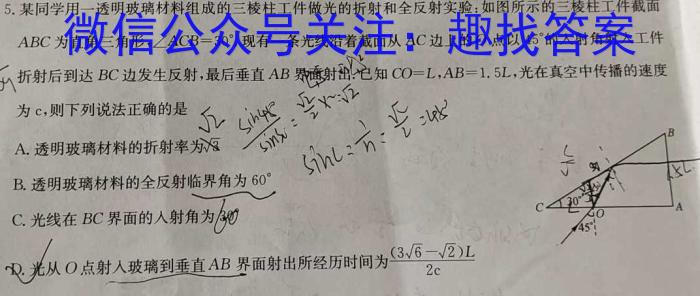 5. 某同学用一透明玻璃材料组成的三棱柱工件做光的折射和全反射实验,如图所示的三棱柱工件截面
微信公众号关注：趣找答案
ABC 为直角三角形,∠ACB=30°,现有一条光线沿着截面从 AC 边上的 O 点以 45°的入射角射入工件
折射后到达 BC 边发生反射,最后垂直 AB 界面射出.已知 CO=L,AB=1.5L,光在真空中传播的速度
为 c,则下列说法正确的是
A. 透明玻璃材料的折射率为
B. 透明玻璃材料的全反射临界角为 60°
C. 光线在 BC 界面的入射角为 30°
D. 光从 O 点射入玻璃到垂直 AB 界面射出所经历时间为 (3√6-√2)L/2c
√2
sin45°/sin = √2/2 × = √2
sinC = 1/n = √2/2 = 45°
60
B
C
30°
L
O
A
45°